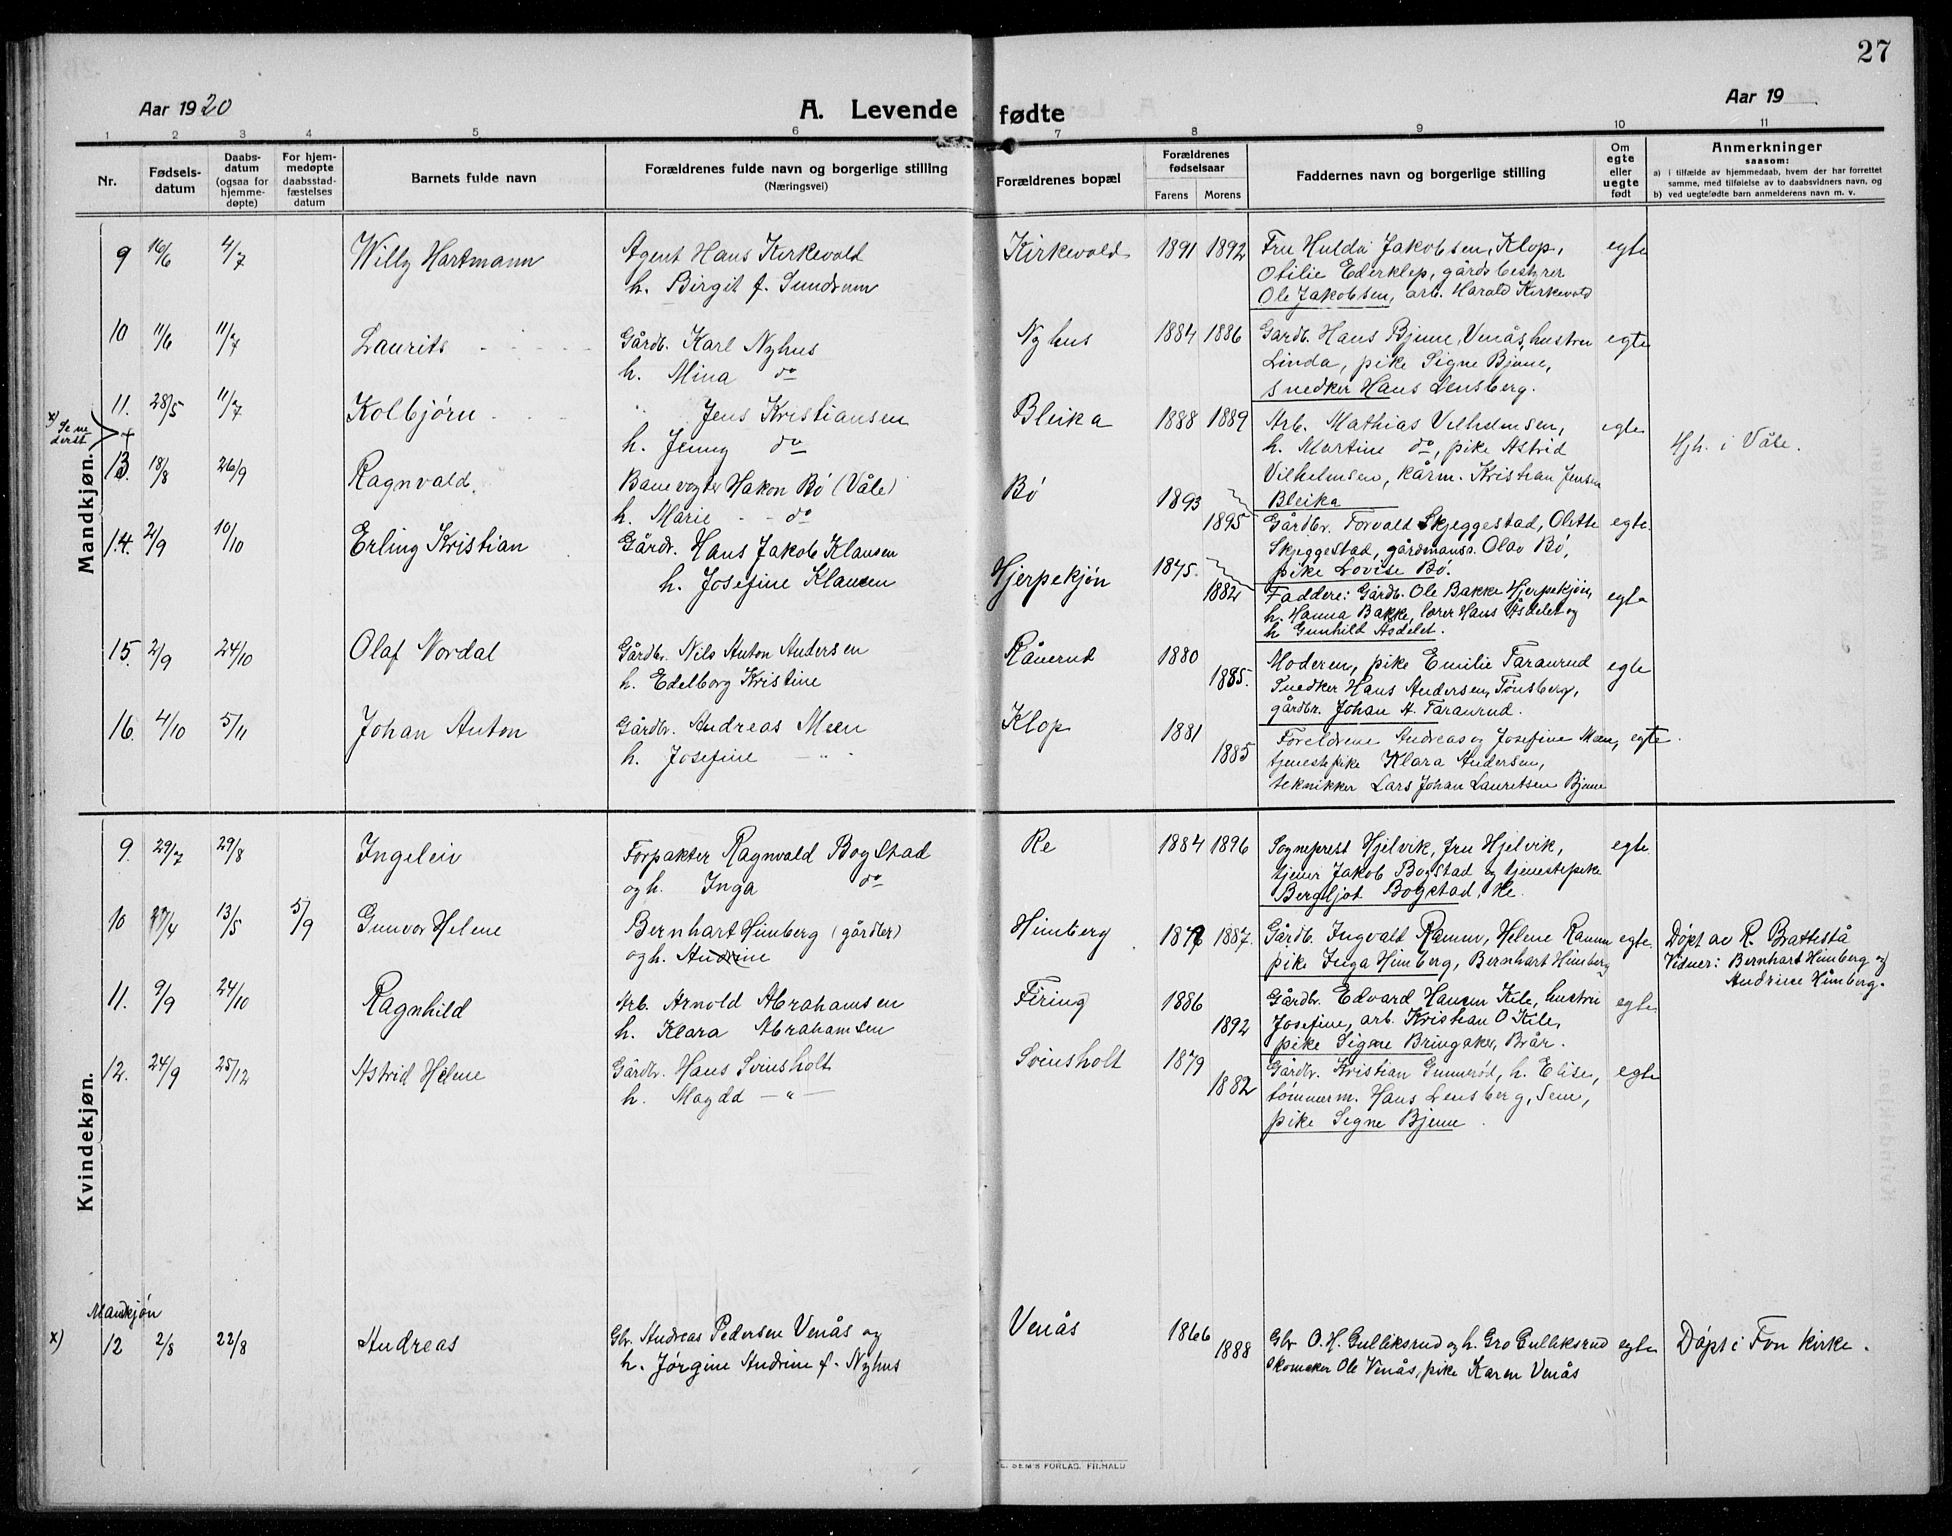 27
Aar 1920
A. Levende fødte
Aar 19
1 2 3 4 5 6 7 8 9 10 11
Nr.
Fødsels-
datum
Daabs-
datum
(ogsaa for
hjemme-
døpte)
For hjem-
medøpte
daabsstad-
fæstelses
datum
Barnets fulde navn
Forældrenes fulde navn og borgerlige stilling
(Næringsvei)
Forældrenes bopæl
Forældrenes
fødselsaar
Farens Morens
Faddernes navn og borgerlige stilling
Om
egte
eller
uegte
født
Anmerkninger
saasom:
a) i tilfælde av hjemmedaab, hvem der har forrettet
samme, med tilføielse av to daabsvidners navn, og
b) ved uegtefødte barn anmelderens navn m. v.
Mandkjøn.
9 16/6 4/7 Willy Hartmann
Agent Hans Kirkevold
h. Birgit f. Sundrum
Kirkevold 1891 1892
Fru Hulda Jakobsen, Klop,
Otilie Ederklep, gårdsbestyrer
Ole Jakobsen, arb. Harald Kirkevold
egte
10 11/6 11/7 Laurits
Gårdb. Karl Nyhus
h. Mina do
Nyhus 1884 1886
Gardb. Hans Bjune, Venås, hustru
Linda, pike Signe Bjune,
snedker Hans Lensberg.
egte
x) Se nederst
11. 28/5 11/7 Kolbjørn
" Jens Kristiansen
h. Jenny do
Bleika 1888 1889
Arb. Mathias Vilhelmsen,
h. Martine do, pike Astrid
Vilhelmsen, kårm. Kristian Jensen
Bleika
egte
Hjh. i Våle.
13. 18/8 26/9 Ragnvald
Banevogter Hakon Bö (Våle)
h. Marie do
Bö 1893 1895
Gårdbr. Torvald Skjeggestad, Olette
Skjeggestad, gårdmanss. Olav Bö,
pike Lovise Bö.
egte
14. 2/9 10/10 Erling Kristian
Gårdr. Hans Jakob Klausen
h. Josefine Klausen
Hjerpekjön 1875. 1882
Faddere: Gårdb. Ole Bakke Hjerpekjön,
h. Hanna Bakke, lærer Hans Åsdelet og
h Gunhild Åsdelet.
egte
15. 2/9 24/10 Olaf Nordal
Gårdbr. Nils Anton Andersen
h. Edelborg Kristine
Rånerud 1880 1885.
Moderen, pike Emilie Taranrud
Snedker Hans Andersen, Tønsberg,
gårdbr. Johan A. Taranrud.
egte
16. 4/10 5/11 Johan Anton
Gårdbr. Andreas Meen
h. Josefine — " —
Klop 1881 1885
Foreldrene Andreas og Josefine Meen,
tjenestepike Klara Andersen,
teknikker Lars Johan Lauritsen Bjune
egte.
Kvindekjøn.
9. 29/7 29/8 Ingeleiv
Forpakter Ragnvald Bogstad
og h. Inga do
Re 1884 1896
Sogneprest Hjelvik, fru Hjelvik,
tjener Jakob Bogstad og tjenestepike
Bergljot Bogstad, Re.
egte.
10 /4 13/5 5/9 Gunvor Helene
Bernhart Himberg (gårdbr)
og h. Andrine
Himberg 1887.
Gårdb. Ingvald Ramm, Helene Ramm
pike Inga Himberg, Bernhart Himberg
egte.
Döpt av R. Brattistå
Vidner: Bernhart Himberg og
Andrine Himberg.
11. 9/9 24/10 Ragnhild
Arb. Arnold Abrahamsen
h. Klara Abrahamsen
Firing 1886 1892
Gårdbr. Edvard Hansen Kile, hustru
Josefine, arb. Kristian O Kile,
pike Signe Bringaker, Brår.
egte
12. 24/9 25/12 Astrid Helene
Gårdbr. Hans Svinsholt
h. Magda — " —
Svinsholt 1879 1882
Gårdbr. Kristian Gunnerød, h. Elise,
tømmerm. Hans Lensberg, Sem,
pike Signe Bjune.
egte
Mandkjön
x) 12 2/8 22/8 Andreas
Gbr. Andreas Pedersen Venås og
h. Jørgine Andrine f. Nyhus
Venås 1866 1888
Gbr O. H. Gulliksrud og h. Gro Gulliksrud
skomaker Ole Venås, pike Karen Venås
egte
Döpt i Fon kirke.
SEM'S FORLAG. FR.HALD